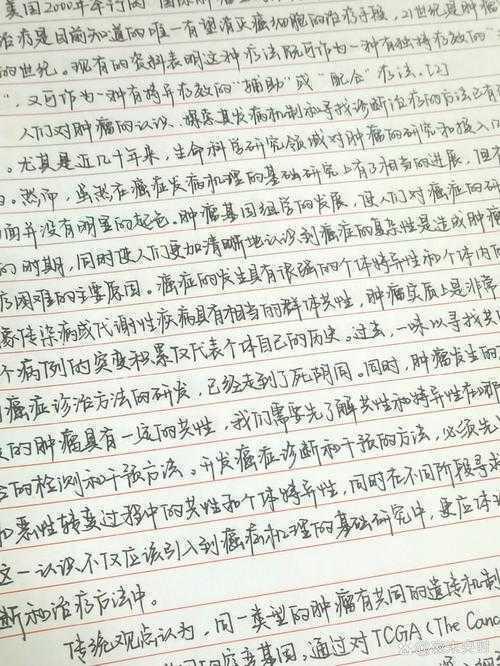 美国2000年举行的
治疗是目前知道的唯一有望消灭癌细胞的治疗手段，21世纪是肿瘤
的世纪。现有的资料表明这种疗法既可作为一种有独特疗效的"
"，又可作为一种有特异疗效的"辅助"或"配合"疗法。[2]
人们对肿瘤的认识、探索其发病机制和寻找诊断治疗的方法已有
。尤其是近几十年来，生命科学研究领域对肿瘤的研究和投入
。然而，虽然在癌症发病机理的基础研究上有了相当的进展，但
面并没有明显的起色。肿瘤基因组学的发展，使人们对癌症的研
的时期，同时使人们更加清晰地认识到癌症的复杂性是造成肿瘤
疗困难的主要原因。癌症的发生具有很强的个体特异性和个体内
像传染病或代谢性疾病具有相当的群体共性，肿瘤实质上是非常
个病例的突变积累仅代表个体自己的历史。过去，一味以寻找共
癌症诊治方法的研发，已经走到了死胡同。同时，肿瘤发生的
的肿瘤具有一定的共性，我们需要先了解共性和特异性在哪
合的检测和干预方法。开发癌症诊断和干预的方法，必须先
和恶性转变过程中的共性和个体特异性，同时在不同阶段寻找
这一认识不仅应该引入到癌症机理的基础研究中，更应体
断和治疗方法中。
传统观点认为，同一类型的肿瘤有共同的遗传机制
的突变基因。通过对TCGA(The Canc